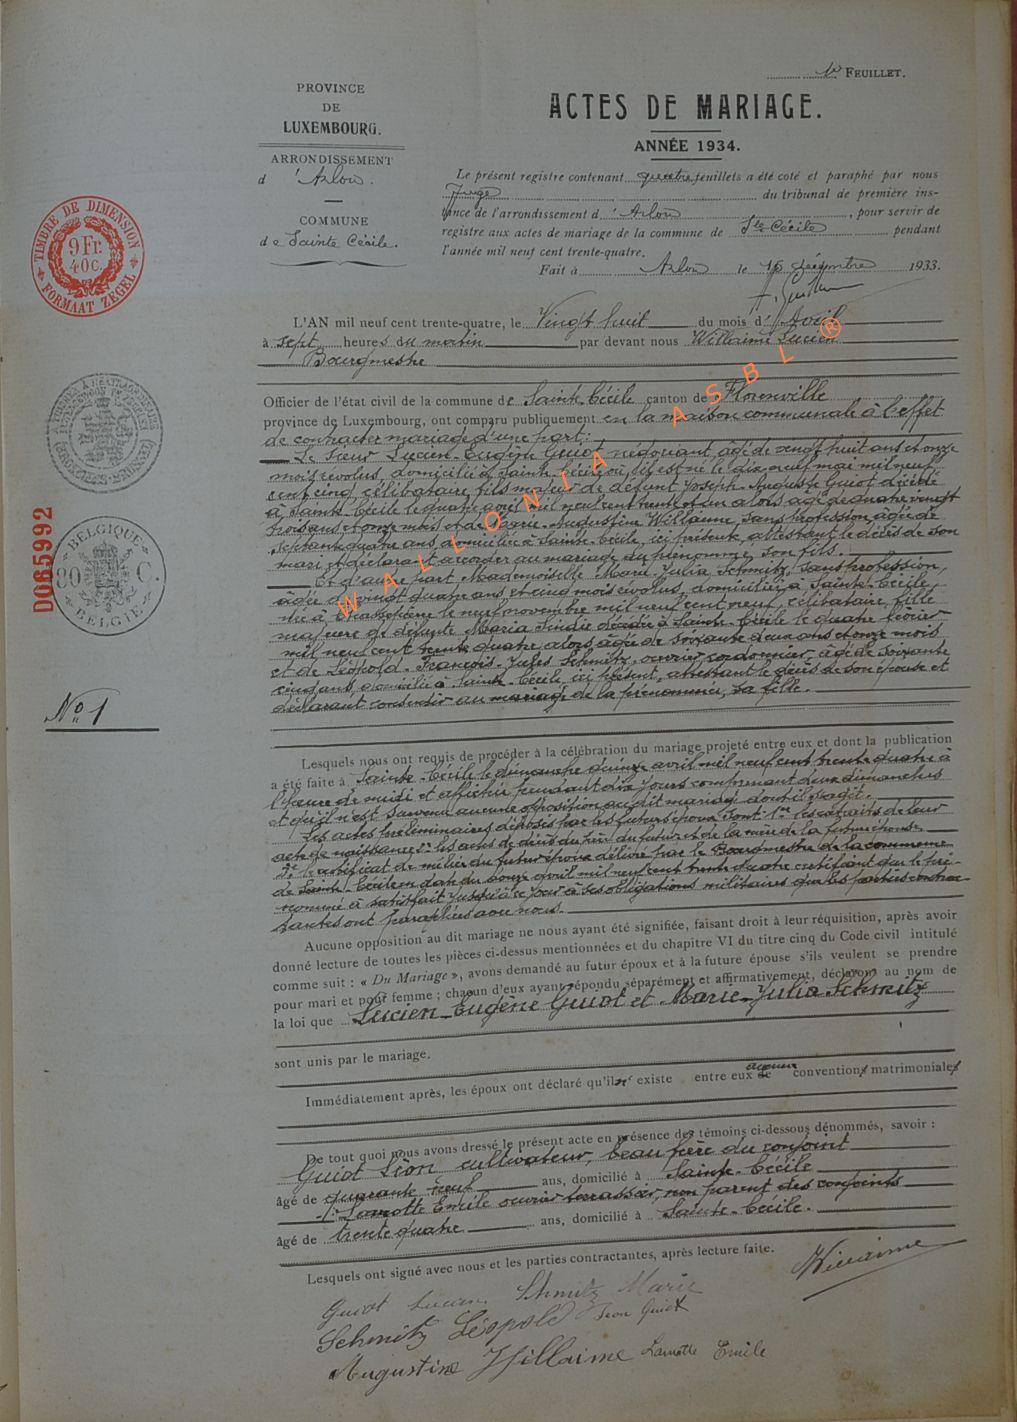 1er FEUILLET.
PROVINCE
DE
LUXEMBOURG.
ARRONDISSEMENT
d'Arlon.
COMMUNE
de Sainte Cécile.
ACTES DE MARIAGE.
ANNÉE 1934.
Le présent registre contenant quatre feuillets a été coté et paraphé par nous
Juge du tribunal de première ins-
tance de l'arrondissement d'Arlon, pour servir de
registre aux actes de mariage de la commune de Ste Cécile pendant
l'année mil neuf cent trente-quatre.
Fait à Arlon le 15 décembre 1933.
TIMBRE DE DIMENSION
9 Fr.
40 C.
FORMAAT ZEGEL
BELGIQUE
80 C.
BELGIË
D065992
No 1
L'AN mil neuf cent trente-quatre, le Vingt huit du mois d'Avril
à sept heures du matin par devant nous Willaime Lucien
Bourgmestre
Officier de l'état civil de la commune de Sainte Cécile canton de Florenville
province de Luxembourg, ont comparu publiquement en la maison communale à l'effet
de contracter mariage d'une part:
Le Sieur Lucien-Eugène Guiot négociant, âgé de vingt huit ans et onze
mois révolus, domicilié à Sainte-Cécile où il est né le dix neuf mai mil neuf
cent cinq, célibataire, fils majeur de défunt Joseph-Auguste Guiot décédé
à Sainte Cécile le quatre août mil neuf cent trente et un alors âgé de quatre vingt
trois ans et onze mois et de Marie-Augustine Willaime, sans profession, âgée de
septante quatre ans domiciliée à Sainte-Cécile, ici présente, attestant le décès de son
mari et déclarant accorder au mariage du prénommé, son fils.
Et d'autre part Mademoiselle Marie-Julia Schmitz, sans profession,
âgée de vingt quatre ans et cinq mois révolus, domiciliée à Sainte-Cécile,
née à le neuf novembre mil neuf cent neuf, célibataire, fille
majeure de défunte Maria décédée à Sainte-Cécile le quatre février
mil neuf cent trente quatre alors âgée de soixante deux ans et onze mois
et de Léopold-François-Jules Schmitz, ouvrier cordonnier, âgé de soixante
cinq ans, domicilié à Sainte-Cécile, ici présent, attestant le décès de son épouse et
déclarant consentir au mariage de la prénommée, sa fille.
Lesquels nous ont requis de procéder à la célébration du mariage projeté entre eux et dont la publication
a été faite à Sainte-Cécile le dimanche quinze avril mil neuf cent trente quatre à
l'heure de midi et affichée pendant dix jours comprenant deux dimanches
et qu'il n'est survenu aucune opposition au dit mariage dont il s'agit.
Les actes préliminaires déposés par les futurs époux sont 1er les extraits de leur
acte de naissance: les actes de décès du père du futur et de la mère de la future épouse.
2e le certificat de milice du futur époux délivré par le Bourgmestre de la commune
de Sainte-Cécile en date du douze avril mil neuf cent trente quatre certifiant que le pré-
nommé a satisfait jusqu'à ce jour à ses obligations militaires que les parties contrac-
tantes ont paraphées avec nous.
Aucune opposition au dit mariage ne nous ayant été signifiée, faisant droit à leur réquisition, après avoir
donné lecture de toutes les pièces ci-dessus mentionnées et du chapitre VI du titre cinq du Code civil intitulé
comme suit : « Du Mariage », avons demandé au futur époux et à la future épouse s'ils veulent se prendre
pour mari et pour femme ; chacun d'eux ayant répondu séparément et affirmativement, déclarons au nom de
la loi que Lucien-Eugène Guiot et Marie-Julia Schmitz
sont unis par le mariage.
Immédiatement après, les époux ont déclaré qu'il n'existe entre eux aucune convention matrimoniale
De tout quoi nous avons dressé le présent acte en présence des témoins ci-dessous dénommés, savoir :
Guiot Léon cultivateur, beau frère du conjoint
âgé de quarante neuf ans, domicilié à Sainte-Cécile
Lamotte Emile ouvrier terrassier, non parent des conjoints
âgé de trente quatre ans, domicilié à Sainte-Cécile.
Lesquels ont signé avec nous et les parties contractantes, après lecture faite.
Willaime
Guiot Lucien. Schmitz Marie
Schmitz Léopold Léon Guiot
Augustine Willaime Lamotte Emile
WALLONIA ASBL ®